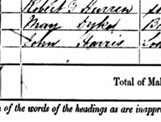 Robert
May Dykes
John Harris
Total of Mal
n of the words of the headings as are inappr